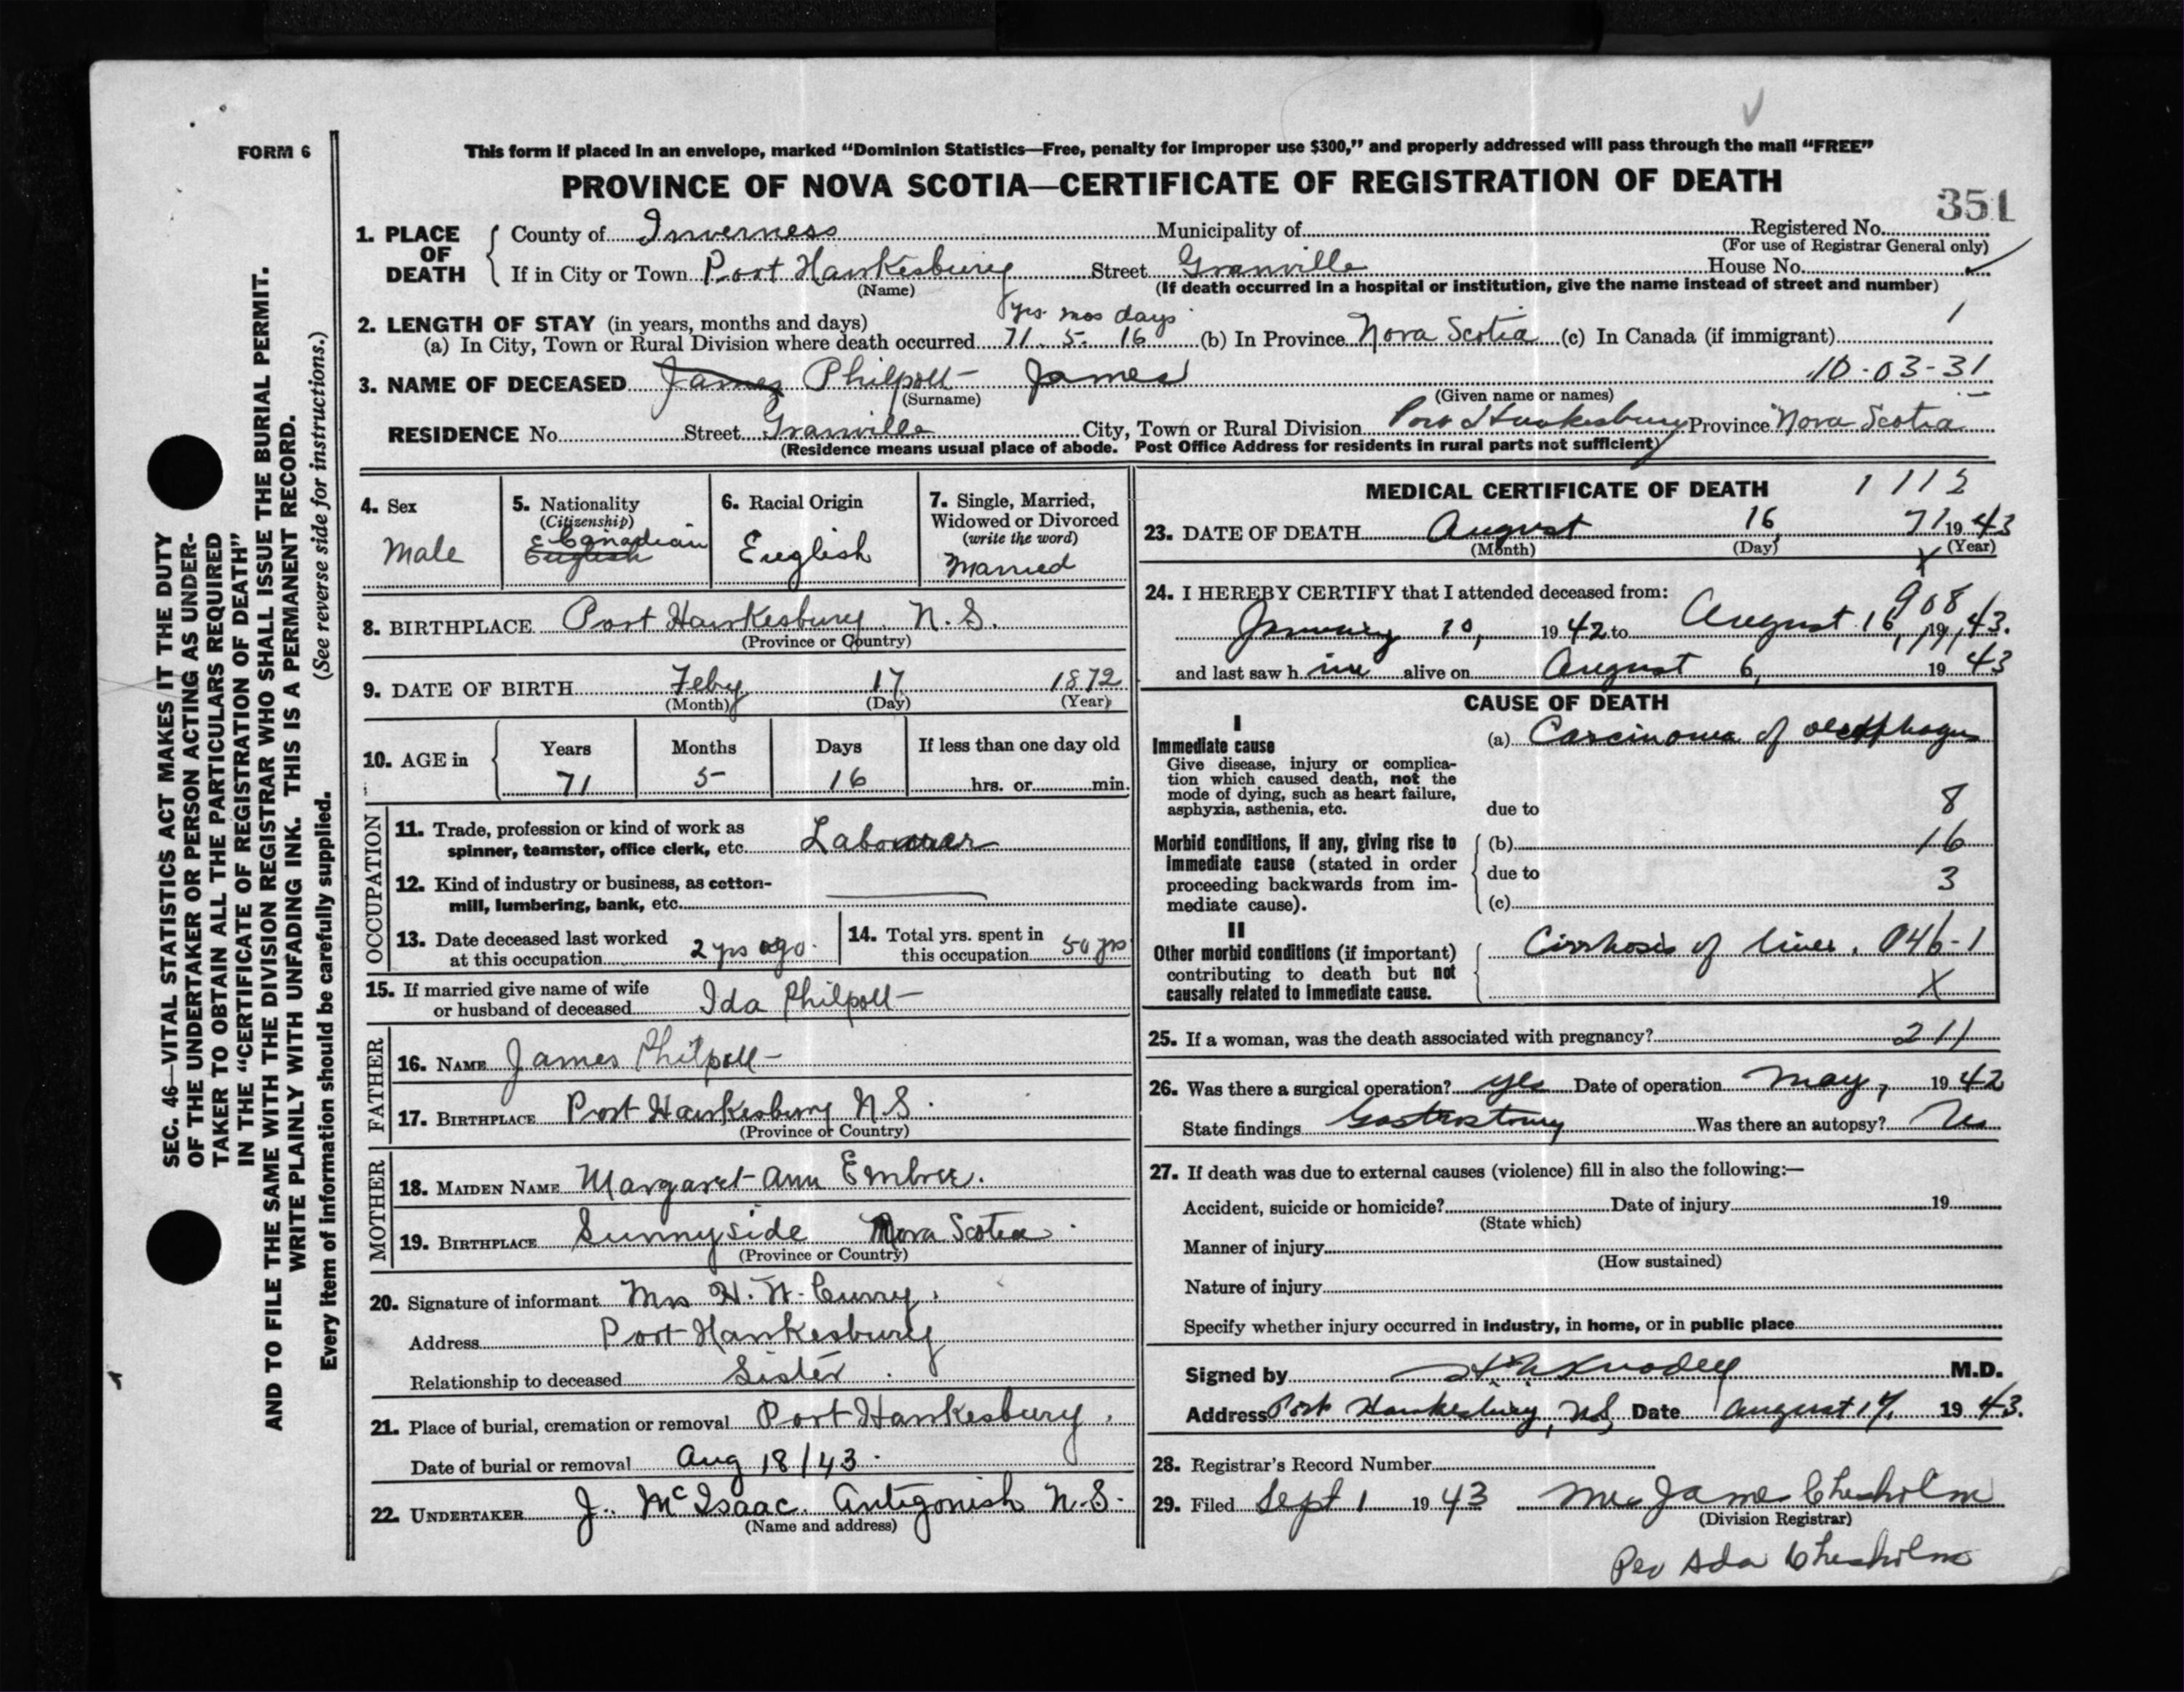 FORM 6
This form if placed in an envelope, marked "Dominion Statistics—Free, penalty for improper use $300," and properly addressed will pass through the mail "FREE"
PROVINCE OF NOVA SCOTIA—CERTIFICATE OF REGISTRATION OF DEATH
351
1. PLACE OF DEATH
County of Inverness Municipality of Registered No.
(For use of Registrar General only)
If in City or Town Port Hawkesbury Street Granville House No.
(Name) (If death occurred in a hospital or institution, give the name instead of street and number)
yrs mos days
2. LENGTH OF STAY (in years, months and days)
(a) In City, Town or Rural Division where death occurred 71 5 16 (b) In Province Nova Scotia (c) In Canada (if immigrant) 1
3. NAME OF DECEASED James Philpott James 10-03-31
(Surname) (Given name or names)
RESIDENCE No. Street Granville City, Town or Rural Division Port Hawkesbury Province Nova Scotia
(Residence means usual place of abode. Post Office Address for residents in rural parts not sufficient)
4. Sex
Male
5. Nationality
(Citizenship)
Canadian
English
6. Racial Origin
English
7. Single, Married,
Widowed or Divorced
(write the word)
Married
8. BIRTHPLACE Port Hawkesbury N.S.
(Province or Country)
9. DATE OF BIRTH Feby 17 1872
(Month) (Day) (Year)
10. AGE in Years Months Days If less than one day old
71 5 16 hrs. or min.
OCCUPATION
11. Trade, profession or kind of work as
spinner, teamster, office clerk, etc. Labourer
12. Kind of industry or business, as cotton-
mill, lumbering, bank, etc.
13. Date deceased last worked
at this occupation 2 yrs ago.
14. Total yrs. spent in
this occupation 50 yrs
15. If married give name of wife
or husband of deceased Ida Philpott
FATHER
16. NAME James Philpott
17. BIRTHPLACE Port Hawkesbury N.S.
(Province or Country)
MOTHER
18. MAIDEN NAME Margaret Ann Embree.
19. BIRTHPLACE Sunnyside Nova Scotia
(Province or Country)
20. Signature of informant Mrs H. W. Curry.
Address Port Hawkesbury
Relationship to deceased Sister
21. Place of burial, cremation or removal Port Hawkesbury.
Date of burial or removal Aug 18/43.
22. UNDERTAKER J. McIsaac. Antigonish N.S.
(Name and address)
MEDICAL CERTIFICATE OF DEATH 1 112
23. DATE OF DEATH August 16 71 1943
(Month) (Day) (Year)
X
24. I HEREBY CERTIFY that I attended deceased from: 908
January 10, 1942 to August 16, 1943.
and last saw him alive on August 6, 1943
CAUSE OF DEATH
I
Immediate cause
Give disease, injury or complica-
tion which caused death, not the
mode of dying, such as heart failure,
asphyxia, asthenia, etc.
(a) Carcinoma of oesophagus
due to 8
Morbid conditions, if any, giving rise to
immediate cause (stated in order
proceeding backwards from im-
mediate cause).
(b) 16
due to 3
(c)
II
Other morbid conditions (if important)
contributing to death but not
causally related to immediate cause.
Cirrhosis of liver. 046-1
X
25. If a woman, was the death associated with pregnancy? 211
26. Was there a surgical operation? yes Date of operation May, 1942
State findings Gastrostomy Was there an autopsy? No
27. If death was due to external causes (violence) fill in also the following:—
Accident, suicide or homicide? Date of injury 19
(State which)
Manner of injury
(How sustained)
Nature of injury
Specify whether injury occurred in industry, in home, or in public place
Signed by M.D.
Address Port Hawkesbury, N.S. Date August 17, 1943.
28. Registrar's Record Number
29. Filed Sept 1 1943 Mrs James Chesholm
(Division Registrar)
Per Ada Chesholm
SEC. 46—VITAL STATISTICS ACT MAKES IT THE DUTY
OF THE UNDERTAKER OR PERSON ACTING AS UNDER-
TAKER TO OBTAIN ALL THE PARTICULARS REQUIRED
IN THE "CERTIFICATE OF REGISTRATION OF DEATH"
AND TO FILE THE SAME WITH THE DIVISION REGISTRAR WHO SHALL ISSUE THE BURIAL PERMIT.
WRITE PLAINLY WITH UNFADING INK. THIS IS A PERMANENT RECORD.
Every item of information should be carefully supplied. (See reverse side for instructions.)